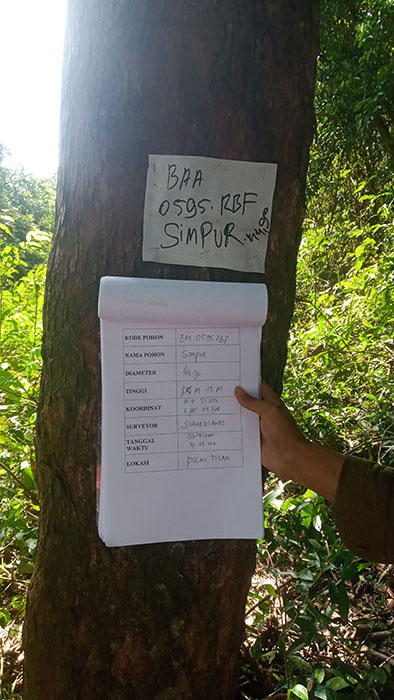 BAA
0595.RBF
SIMPUR 44,90
KODE POHON BAA 0595 RBF
NAMA POHON Simpur
DIAMETER 44,90
TINGGI 15 M
KOORDINAT
SURVEYOR
TANGGAL
WAKTU
LOKASI PULAU TILAN